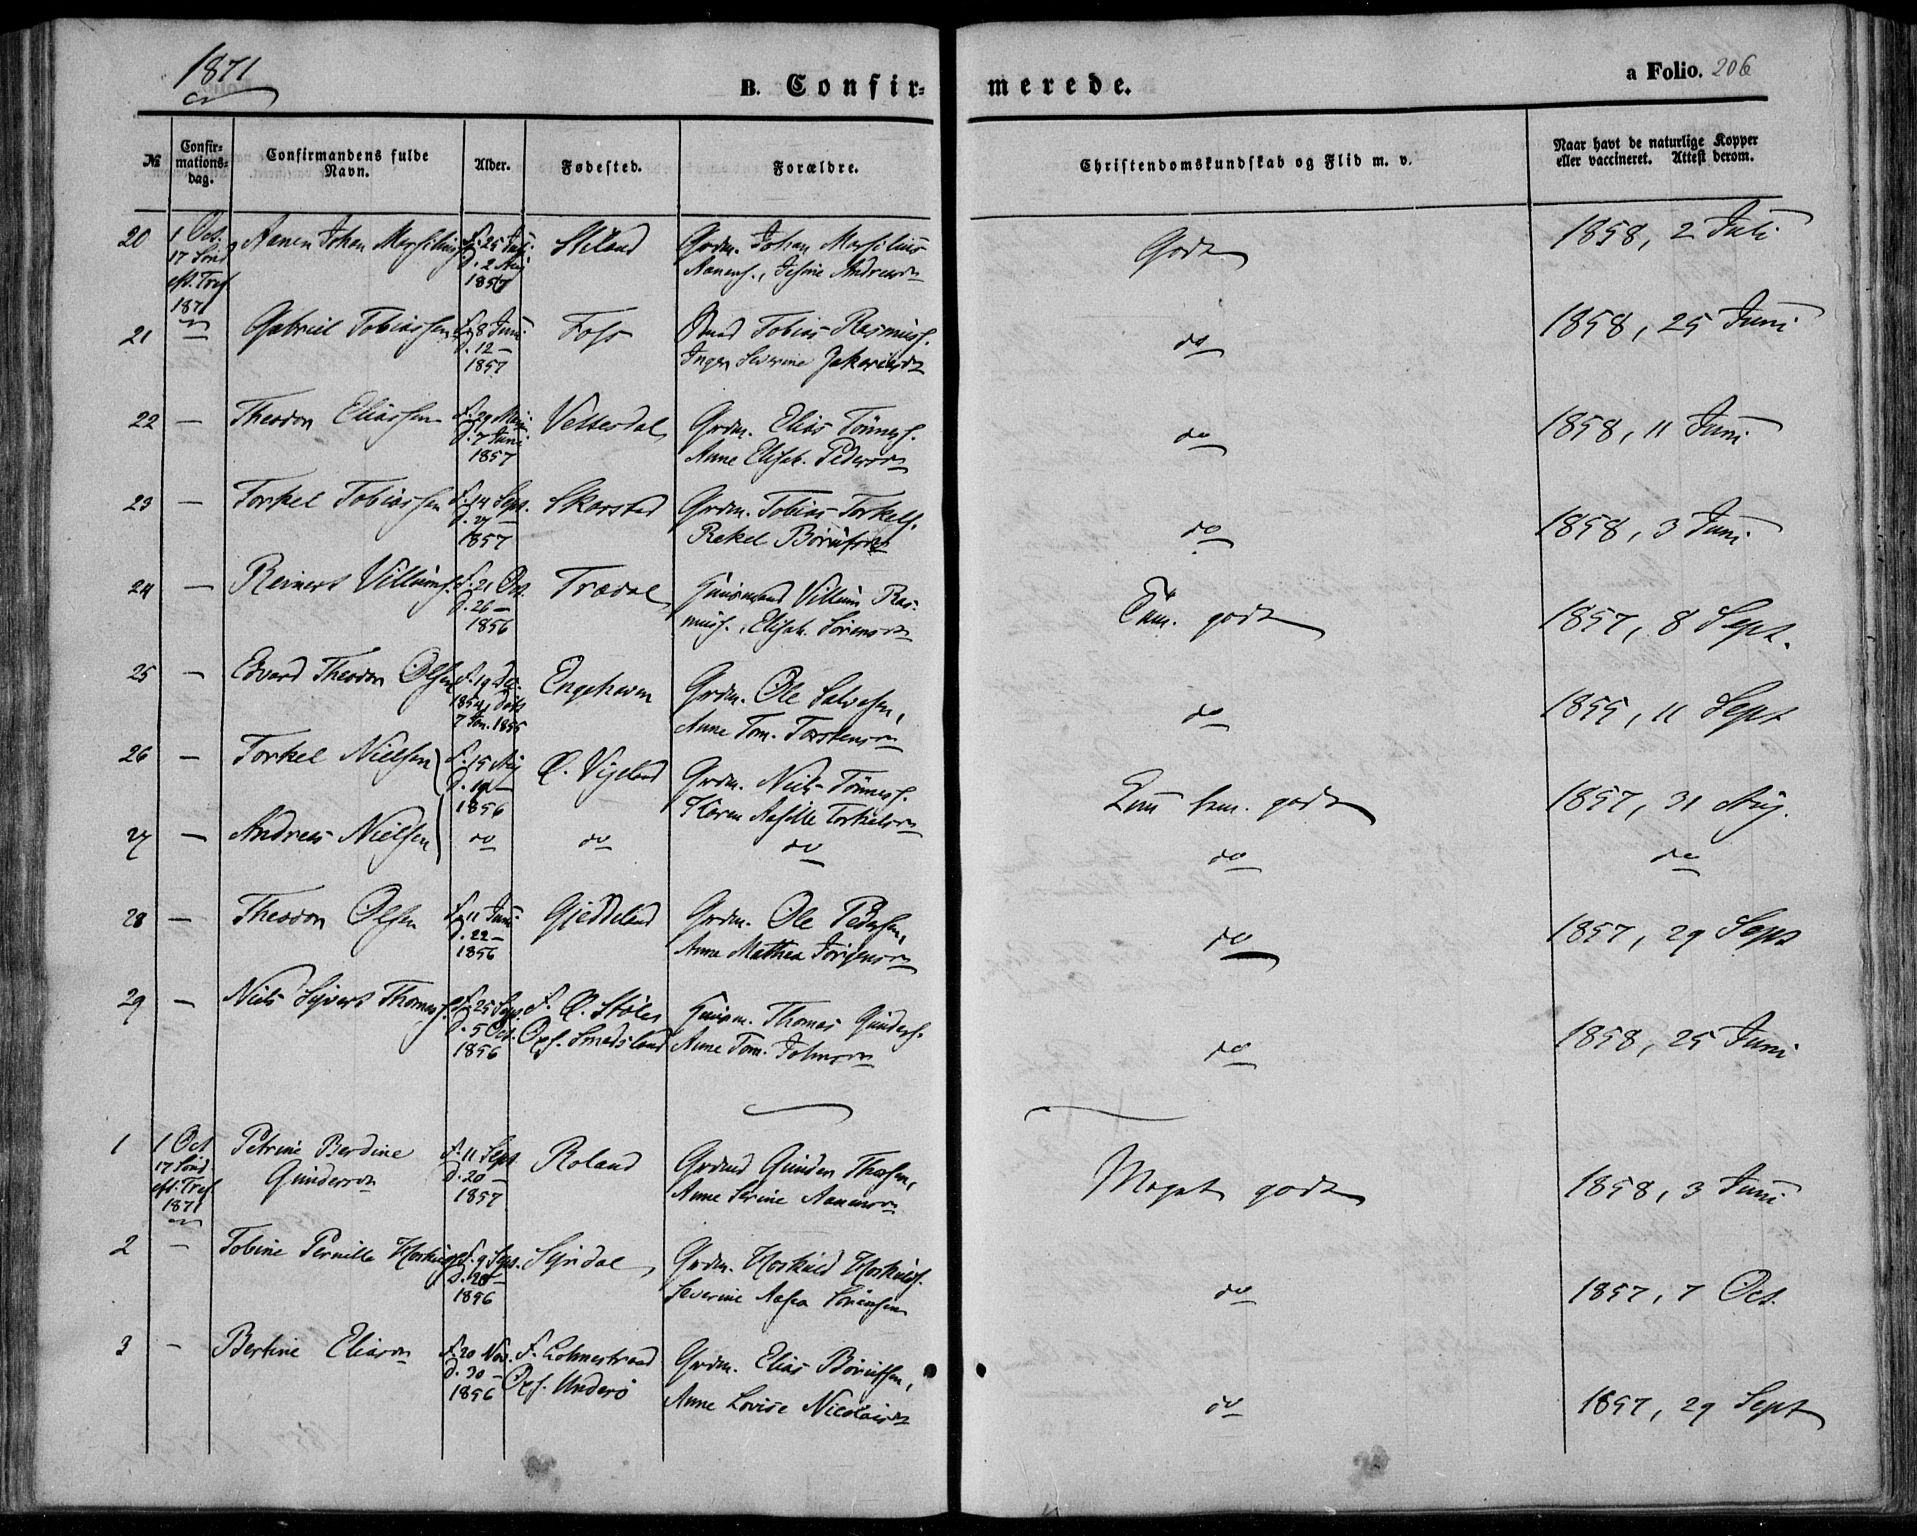 1871
B. Confir-
merede.
a Folio. 206
№
Confir-
mations-
dag.
Confirmandens fulde
Navn.
Alder.
Fødested.
Forældre.
Christendomskundskab og Flid m. v.
Naar havt de naturlige Kopper
eller vaccineret. Attest derom.
20
1 Oct.
17 Sond
eft. Tref
1871
Aanen Johan
2 Aug
1857
Grdm. Johan
Godt
1858, 2 Juli
21
Gabriel Tobiassen
f. 8 Juni
d. 12 —
1857
Foss
Tobias Rasmuss.
Inger Severine
do
1858, 25 Juni
22 —
Theodor Eliassen
f. 29 Mai
d. 7 Juni
1857
Vettedal
Grdm. Elias Tønnes.
Anne Elisab. Pedersdr
do
1858, 11 Juni
23 —
Torkel Tobiassen
f. 14 Sept.
d. 27 —
1857
Skarstad
Grdm. Tobias Torkels.
Rakel
do
1858, 3 Juni
24 —
Reinert Villums.
f. 21 Oct
d. 26 —
1856
Trædal
Huusmand Villum Ras-
mus., Elisab. Sørensdr
Tem. godt
1857, 8 Sept.
25 —
Edvard Theodor Olsen
f. 19 Dec.
1854, Døbt
7 Jan. 1855
Engehaven
Grdm. Ole Salvesen,
Anne Tom. Torstensdr
do
1855, 11 Sept
26 —
Torkel Nielsen
f. 15 Aug
1856
Ø. Vigeland
Grdm. Niels Tønnes.
Karen Aasille Torkelsdr
tem. godt
1857, 31 Aug.
27 —
Andreas Nielsen
do
do
do
do
do
28 —
Theodor Olsen
f. 11 Juni
d. 22 —
1856
Gjeddeland
Grdm. Ole Pedersen,
Anna Mathea Jørgensdr
do
1857, 29 Sept
29 —
Niels Sijvert Thomas.
f. 25 Sept.
d. 5 Oct.
1856
f. Ø. Støle,
Opf. Smedsland
Huusm. Thomas Gunders.
Anne Tom.
do
1858, 25 Juni
1
1 Oct
17 Sond.
eft. Tref
1871
Petrine Berdine
Gundersdr
f. 11 Sept
d. 20 —
1857
Roland
Grdmd Gunder
Anne Serine Aanensdr
Meget godt
1858, 3 Juni
2 —
Tobine Pernille
f. 9 Sept.
1856
Syrdal
Grdm. Hoskuld Hoskulds.
Severine Aasea
do
1857, 7 Oct.
3 —
Bertine Eliasdr
f. 20 Nov.
d. 30 —
1856
Opf. Underø
Grdm. Elias
Anne Lovise Nicolaisdr
do
1857, 29 Sept